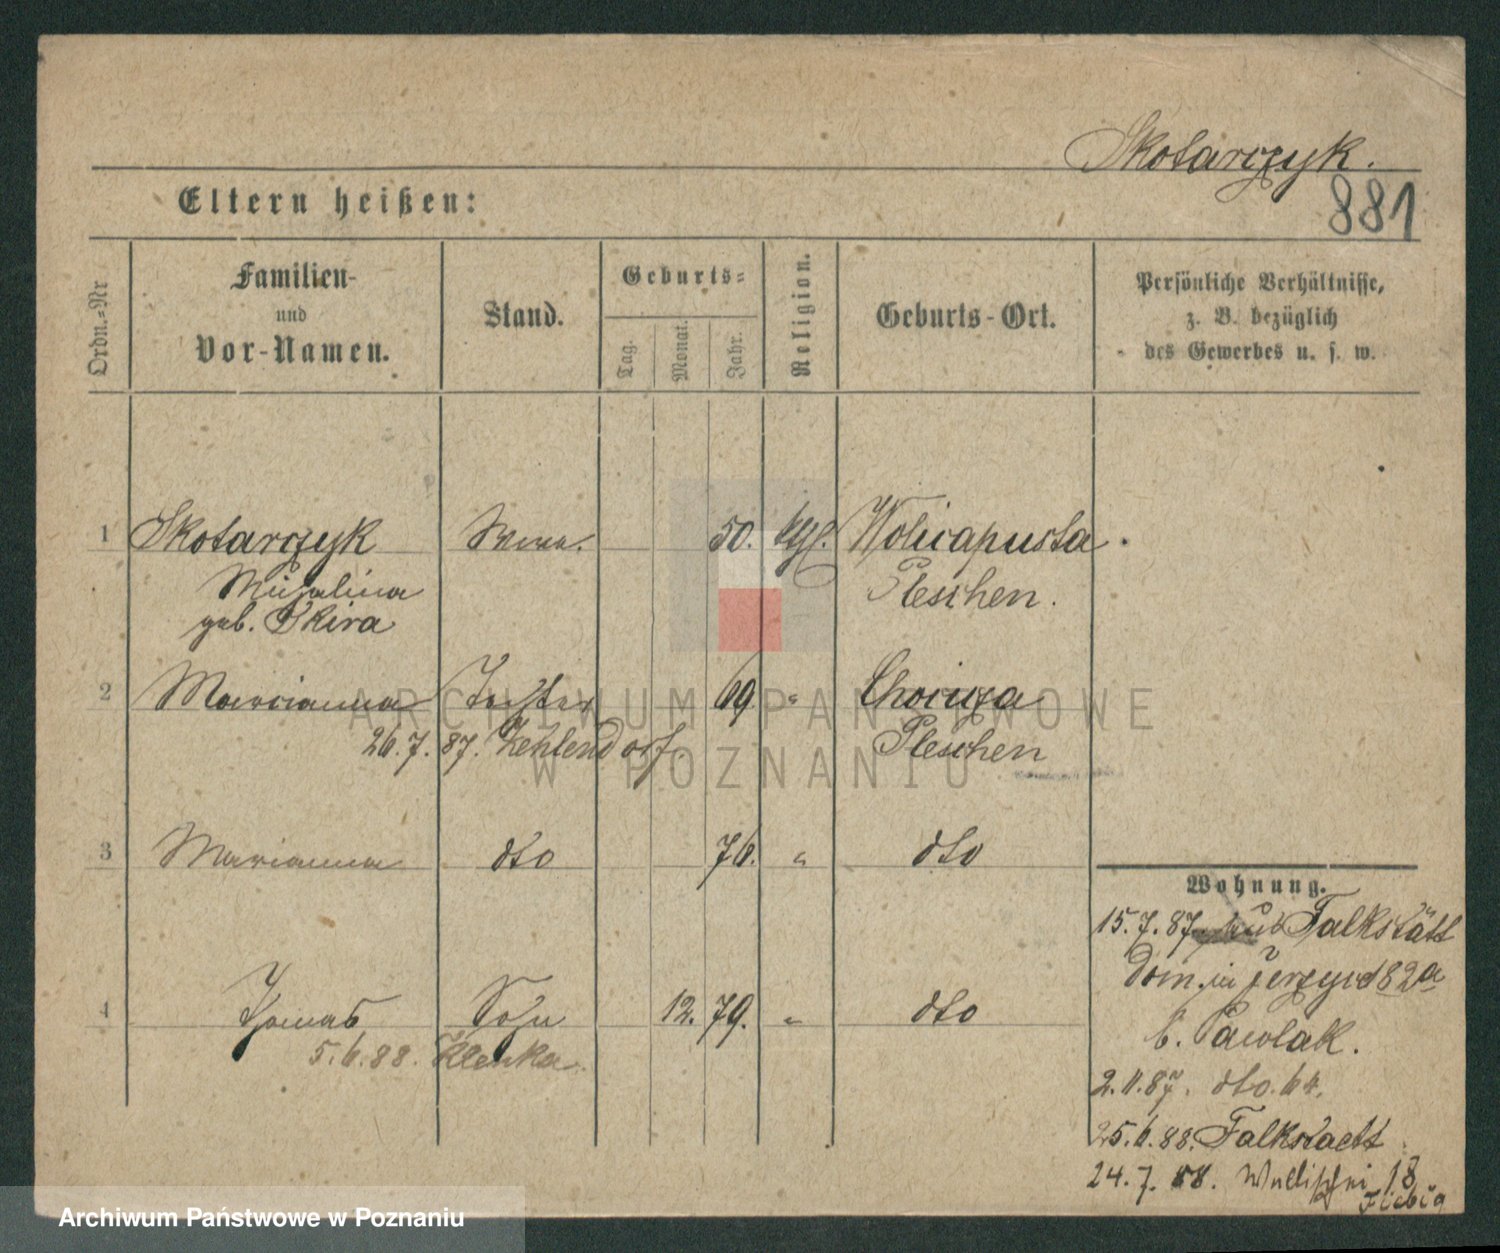 Skotarczyk.
881
Eltern heißen:
Ordn.-Nr
Familien-
und
Vor-Namen.
Stand.
Geburts-
Tag.
Monat.
Jahr.
Religion.
Geburts-Ort.
Persönliche Verhältnisse,
z. B. bezüglich
des Gewerbes u. s. w.
1 Skotarczyk Wwe. 50. kgl. Wolicapusta
Michalina Pleschen.
geb. Skira
2 Marcianna Tochter 69 " Chocicza
26.7.87. Zehlendorf. Pleschen
3 Marianna dto 76. " dto
4 Thomas Sohn 12. 79. " dto
5.6.88. Klenka.
Wohnung.
15.7.87. aus Falkstätt
Dom. in Jerzyce 182a
b. Pawlak.
2.11.87. dto. 64.
25.6.88. Falkstaett
24.7.88. Wallischei 18
Fiebig
ARCHIWUM PAŃSTWOWE
W POZNANIU
Archiwum Państwowe w Poznaniu